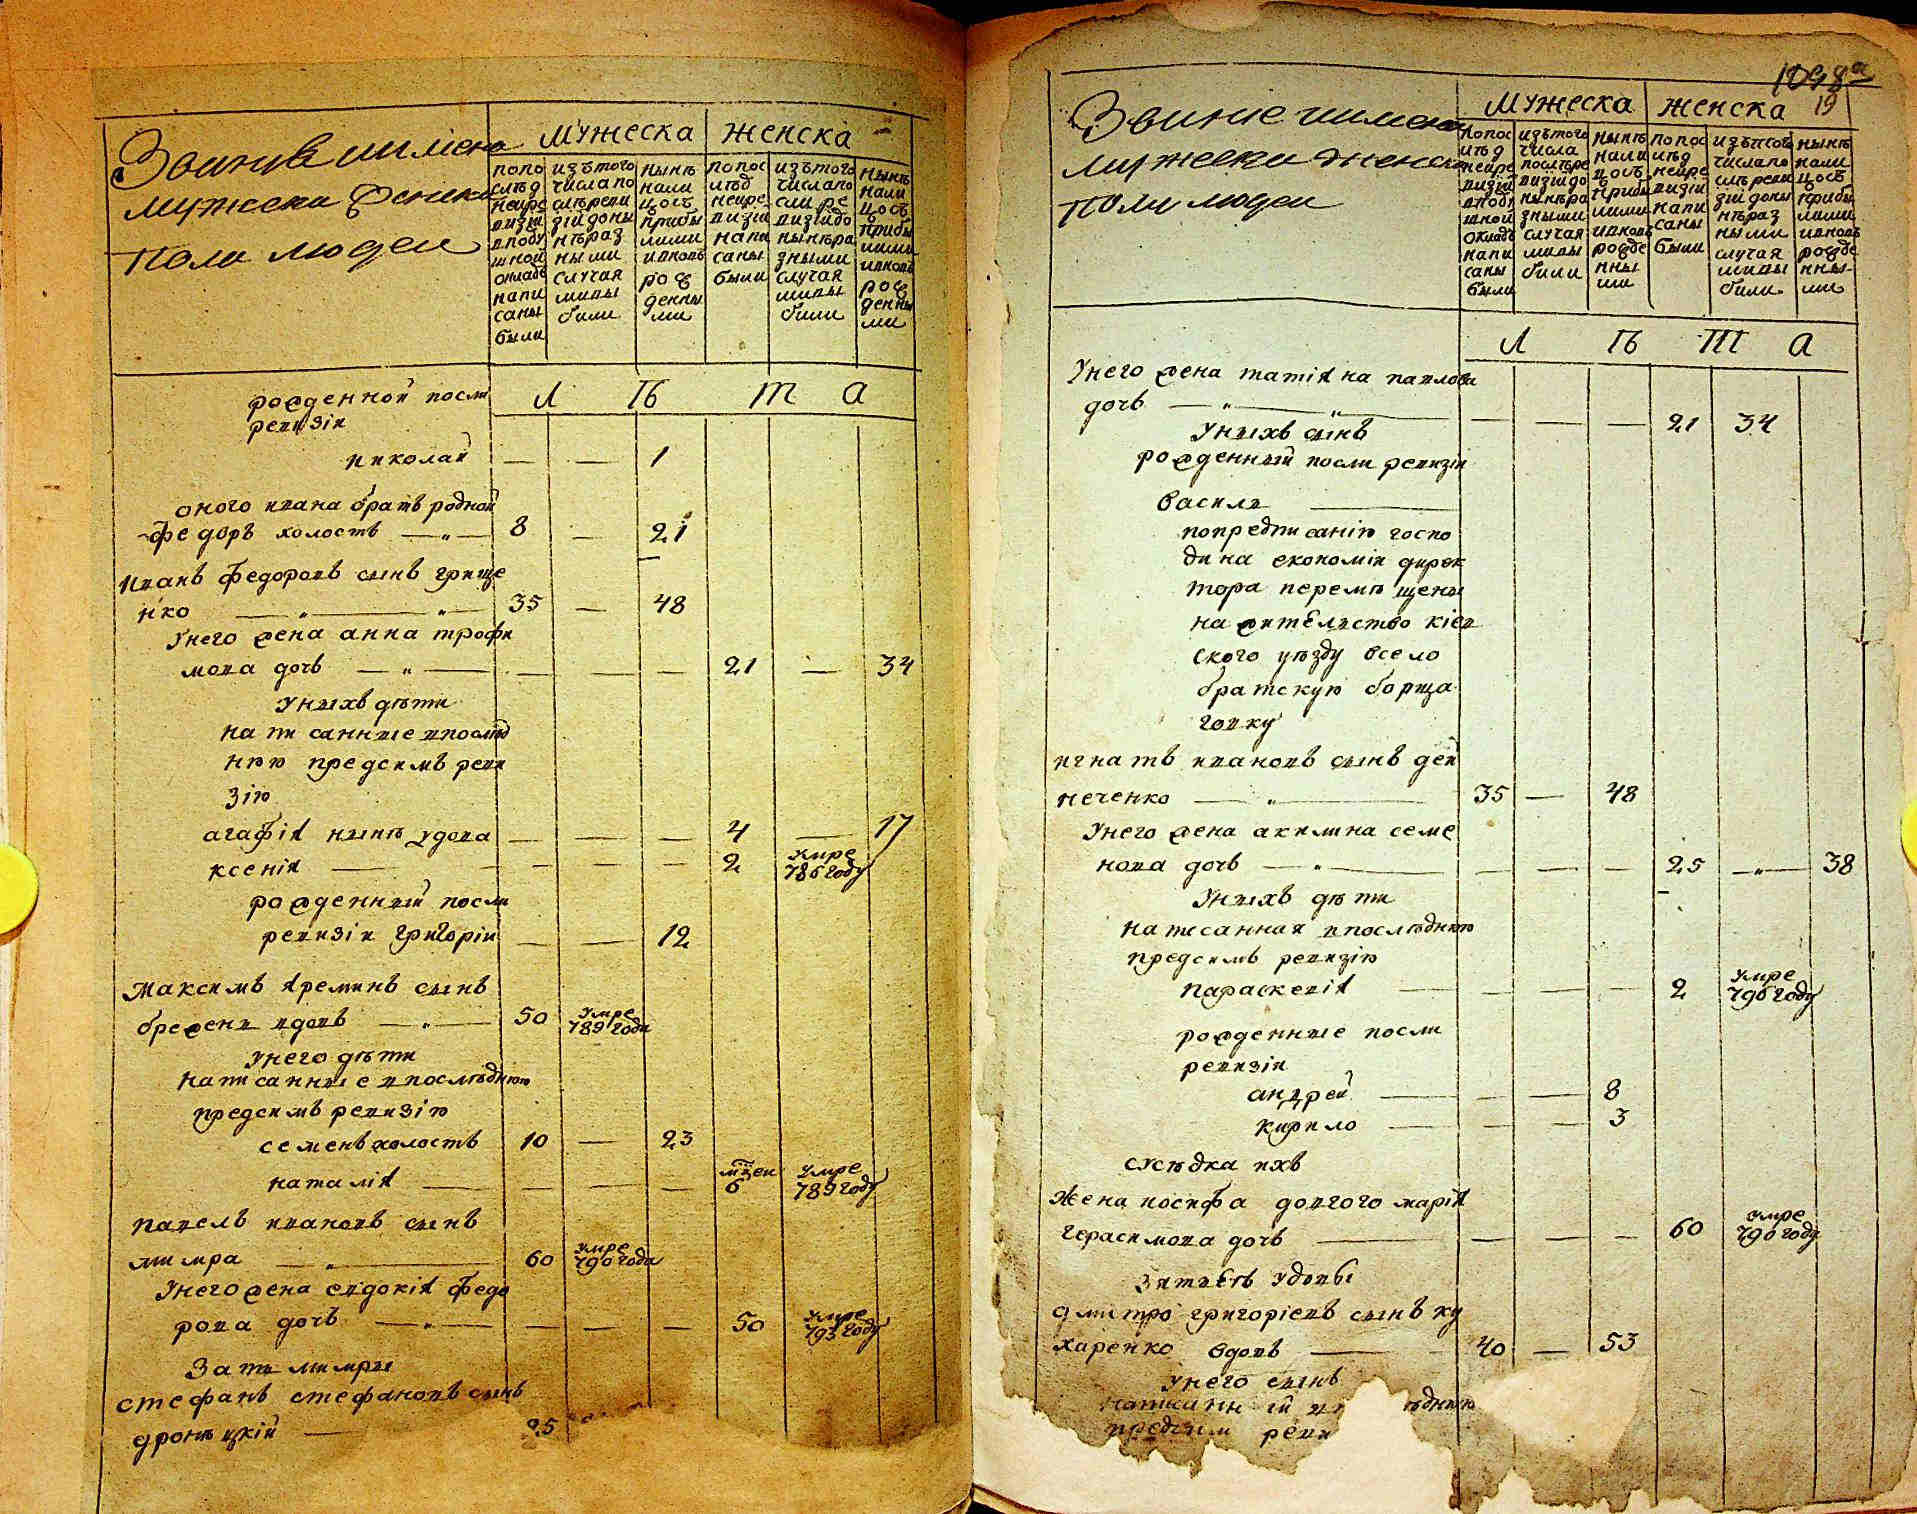 Звание иимена
мужеска ЖЕНСКА
Мужеска женска
поли людеи
попо
слѣд
неире
визіи
вподу
шной
окладѣ
напи
саны
были
изътого
числапо
слѣреви
зіидоны
нѣраз
ными
случая
мивы
били
нынѣ
нали
цосъ
прибы
лими
ивновь
рож
денны
ми
попос
лѣд
неире
визіи
напи
саны
были
изътого
числапо
сли ре
визіидо
нынѣра
зными
случая
мивы
били
нынѣ
нали
цосъ
прибы
лими
ивновь
рож
денны
ми
Л Ѣ Т А
рожденной посли
ревизіи
николай — — 1
оного ивана братъ родной
федоръ холостъ — „ — 8 — 21
иванъ федоровъ сынъ грище
нко — „ — „ — 35 — 48
Унего жена анна трофи
мова дочъ — „ — — — — 21 — 34
Унихъ дѣти
написанные впослѣд
нюю предсимъ реви
зію
агафія нынѣ удова — — — 4 — 17
ксенія — — — — 2 умре 786 году
рожденный посли
ревизіи григоріи — — 12
максимъ яреминъ сынъ
брежен вдовъ — „ — 50 умре 789 году
Унего дѣти
написанные впослѣднюю
предсимъ ревизію
семенъ холостъ 10 — 23
наталія — — — — мѣсеи 6 умре 789 году
павелъ ивановъ сынъ
лимра — „ — 60 умре 790 году
Унего жена евдокія федо
рова дочъ — „ — — — — 50 умре 793 году
Зать лимры
стефанъ стефановъ сынъ
дронѣцкій — 25
1098а
19
Звание иимена
мужеска женска
поли людеи
Мужеска женска
попос
лѣд
неире
визіи
вподу
шной
окладѣ
напи
саны
были
изътого
числа
послѣре
визіидо
нынѣра
зными
случая
мивы
били
нынѣ
нали
цосъ
прибы
лими
ивновь
рожде
нны
ми
попос
лѣд
неире
визіи
напи
саны
были
изътого
числапо
слѣреви
зіидоны
нѣраз
ными
случая
мивы
били
нынѣ
нали
цосъ
прибы
лими
ивновь
рожде
нны
ми
Л Ѣ Т А
Унего жена татіяна павлова
дочъ — „ — „ — — — — 21 34
Унихъ сынъ
рожденный посли ревизіи
василь —
попредписанію госпо
дина економіи дирек
тора перемѣщены
на жительство кіев
ского уѣзду всело
братскую борща
говку
игнатъ ивановъ сынъ дей
неченко — „ — 35 — 48
Унего жена акилина семе
нова дочъ — „ — — — — 25 — „ — 38
Унихъ дѣти
написанная впослѣднюю
предсимъ ревизію
параскевія — — — — 2 умре 796 году
рожденные посли
ревизіи
андрей — — — 8
кирило — — — 3
сусѣдка ихъ
жена иосифа довгого марія
герасимова дочъ — — — — 60 умре 790 году
зятъ удовы
дмитро григоріевъ сынъ ку
харенко вдовъ — 40 — 53
Унего сынъ
предсим реви